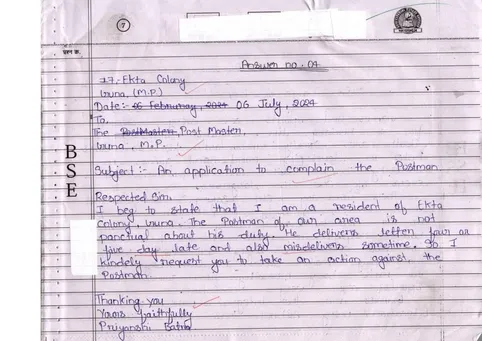 7
प्रश्न क्र.
Answer no - 04
77- Ekta Colony
Guna, (M.P.)
Date:- 06 Februray, 2024 06 July, 2024
To,
The PostMaster Post Master,
Guna, M.P.
Subject :- An application to complain the Postman
Respected Sir,
I beg to state that I am a resident of Ekta
colony Guna. The Postman of our area is not
panctual about his duty. He delivers letter four or
five day late and also misdelivers sometime. So I
kindely request you to take an action against the
Postman.
Thanking you
Yours faithfully
Priyanshi
B
S
E